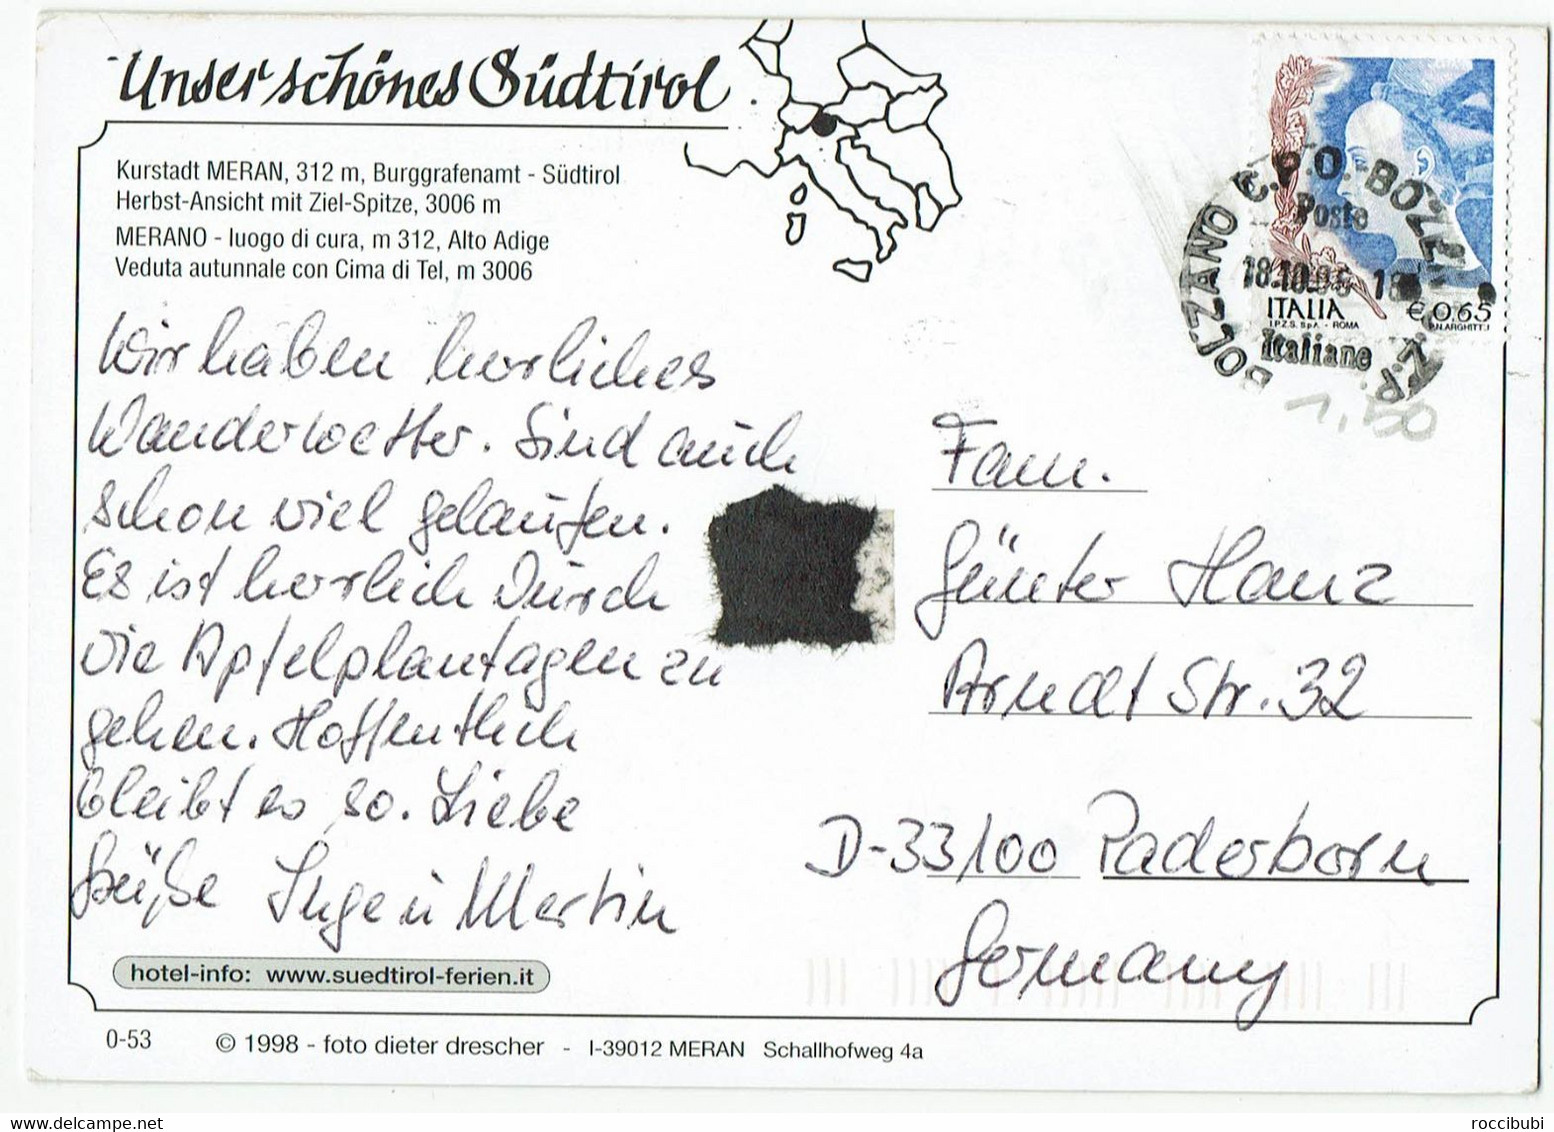 Unser schönes Südtirol
Kurstadt MERAN, 312 m, Burggrafenamt - Südtirol
Herbst-Ansicht mit Ziel-Spitze, 3006 m
MERANO - luogo di cura, m 312, Alto Adige
Veduta autunnale con Cima di Tel, m 3006
Wir haben herrliches
Wanderwetter. Sind auch
schon viel gelaufen.
Es ist herrlich durch
die Apfelplantagen zu
gehen. Hoffentlich
bleibt es so. Liebe
Grüße Inge u Martin
hotel-info: www.suedtirol-ferien.it
0-53 © 1998 - foto dieter drescher - I-39012 MERAN Schallhofweg 4a
BOLZANO C.P.O.-BOZEN
Poste
18.10.05 18
Italiane
ITALIA € 0,65
I.P.Z.S. S.p.A. - ROMA
1,50
Fam.
Günter Hanz
Arndt Str. 32
D-33100 Paderborn
Germany
roccibubi